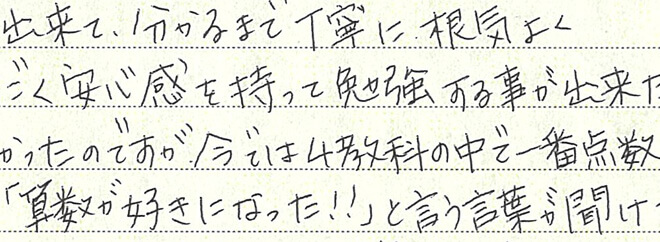 出来て、分かるまで丁寧に根気よく
ごく安心感を持って勉強する事が出来た
かったのですが、今では4教科の中で一番点数
「算数が好きになった!!」と言う言葉が聞け